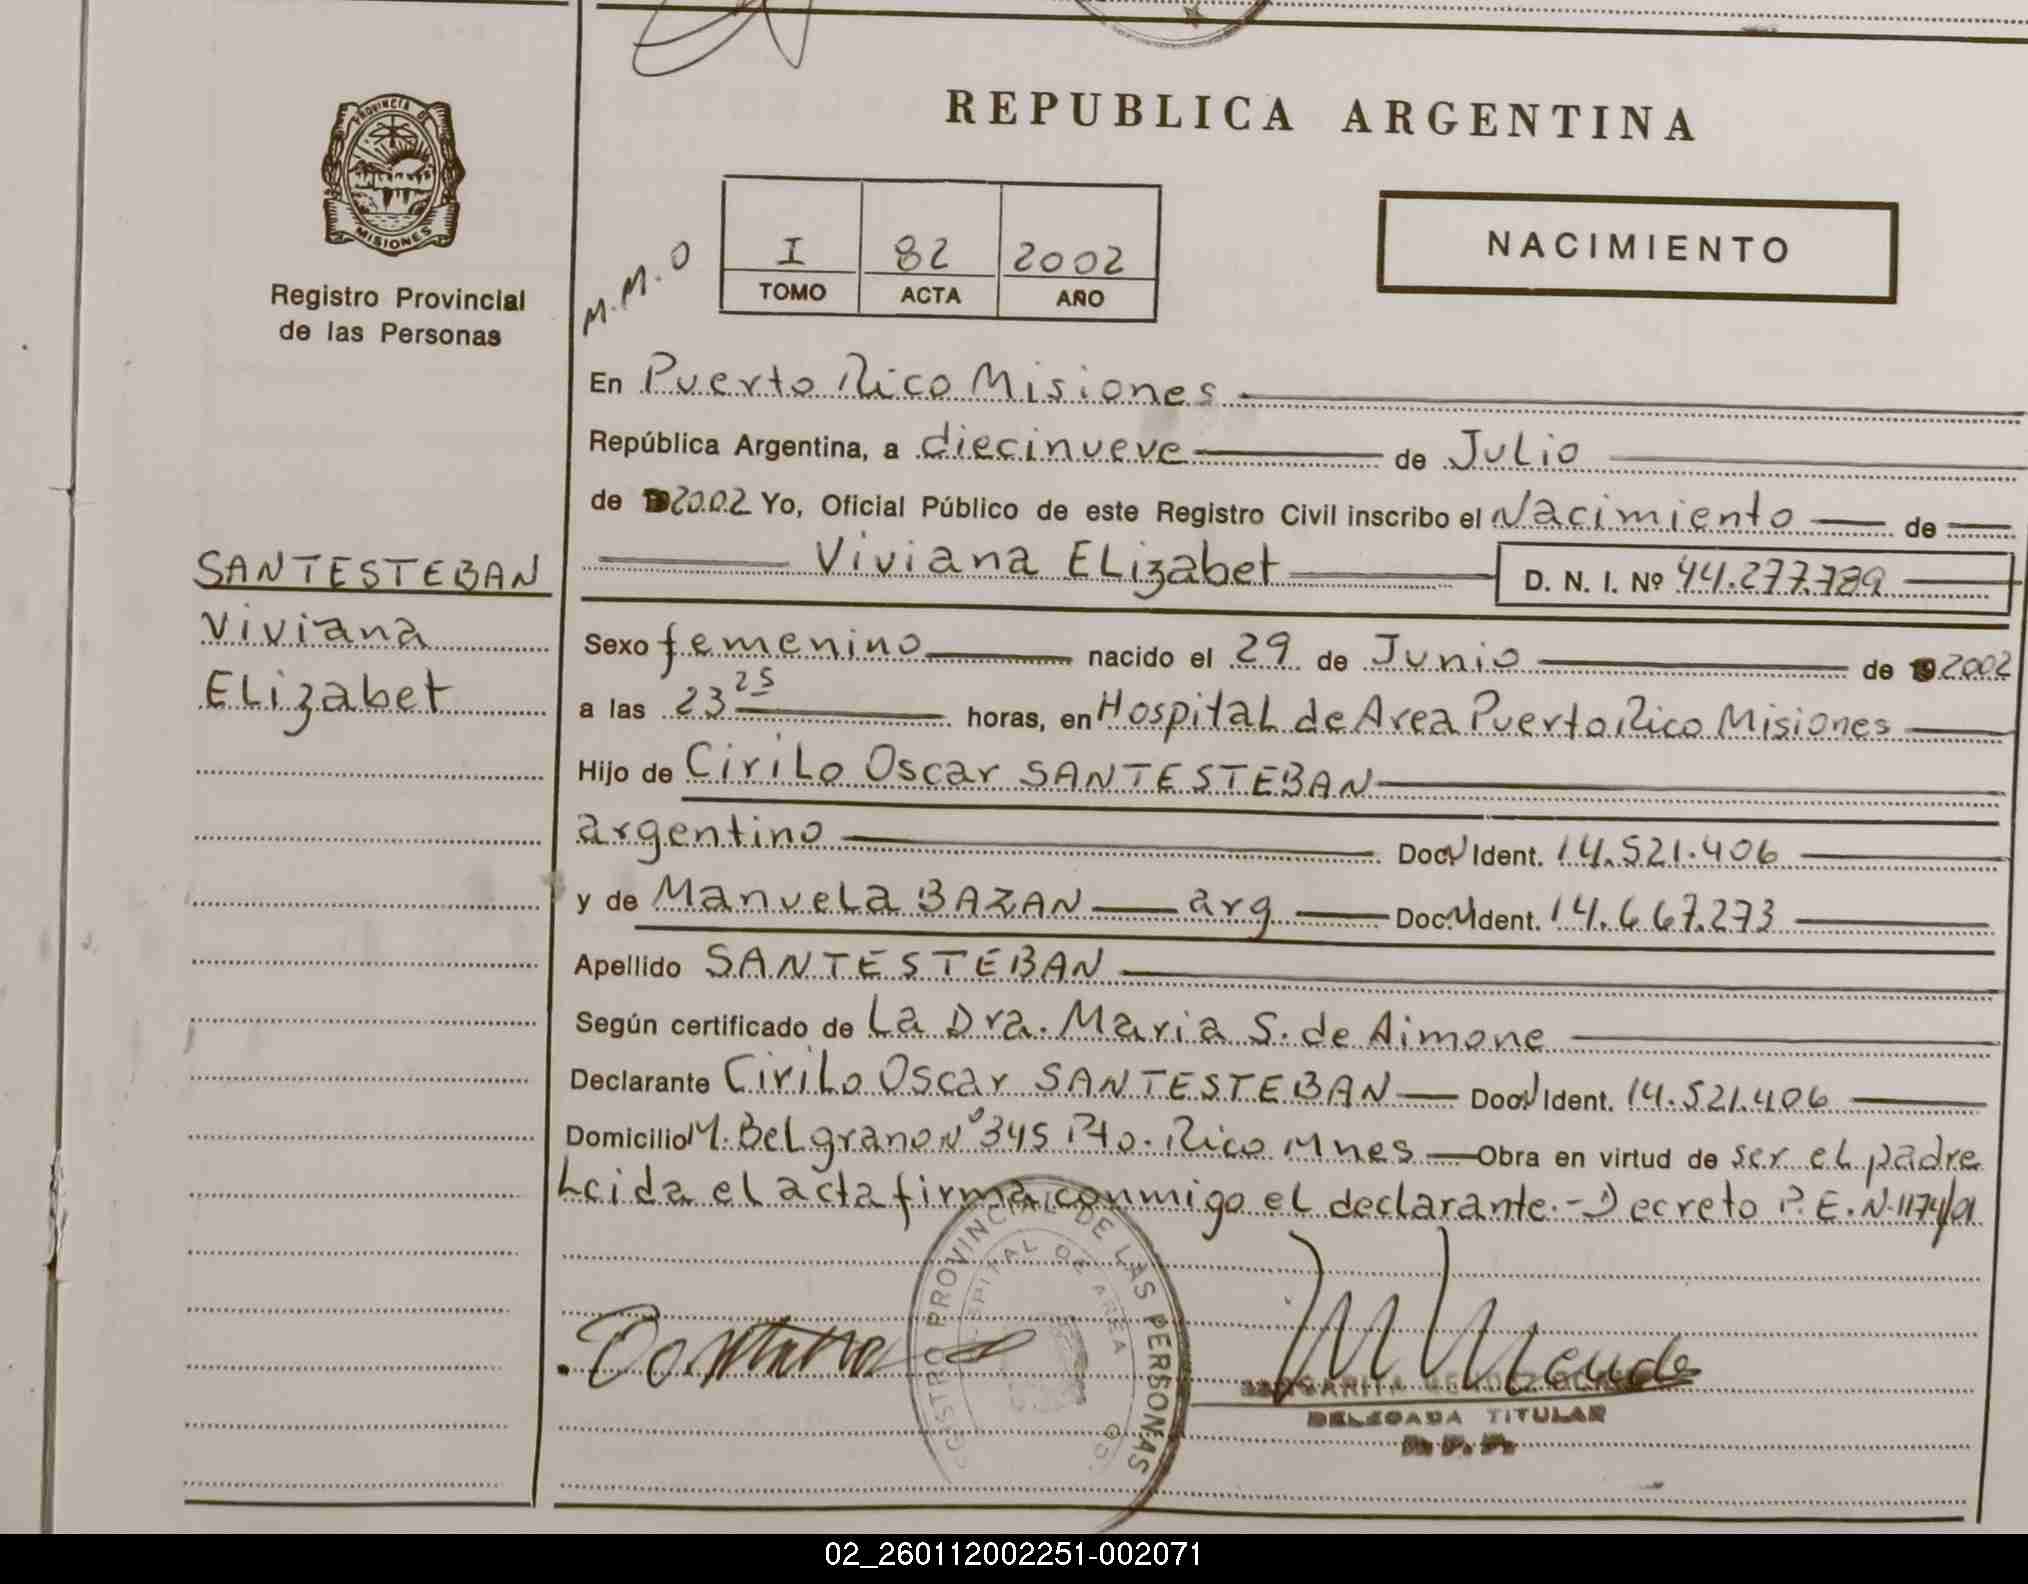 REPUBLICA ARGENTINA
PROVINCIA DE
MISIONES
Registro Provincial
de las Personas
M.M.O
I 82 2002
TOMO ACTA AÑO
NACIMIENTO
En Puerto Rico Misiones
República Argentina, a diecinueve de Julio
de 2002 Yo, Oficial Público de este Registro Civil inscribo el Nacimiento de
Viviana ELizabet D. N. I. Nº 44.277.789
SANTESTEBAN
Viviana
ELizabet
Sexo femenino nacido el 29 de Junio de 2002
a las 23 25 horas, en HospitaL de Area Puerto Rico Misiones
Hijo de CiriLo Oscar SANTESTEBAN
argentino Doc. Ident. 14.521.406
y de ManueLa BAZAN arg Doc. Ident. 14.667.273
Apellido SANTESTEBAN
Según certificado de La Dra. Maria S. de Aimone
Declarante CiriLo Oscar SANTESTEBAN Doc. Ident. 14.521.406
Domicilio M. BeLgrano Nº 345 Pto. Rico Mnes Obra en virtud de ser eL padre
Leida el acta firma conmigo eL declarante.- Decreto P.E.N. 1174/01
PROVINCIAL DE LAS PERSONAS
HOSPITAL DE AREA
DELEGADA TITULAR
02_260112002251-002071